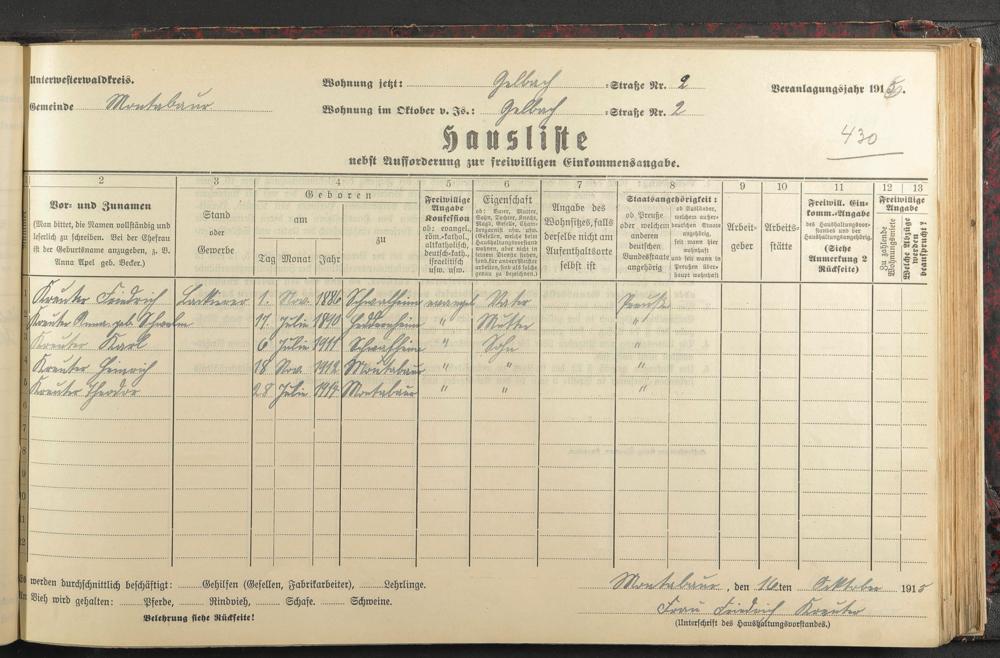 Unterwesterwaldkreis.
Wohnung jetzt: Gelbach =Straße Nr. 2
Veranlagungsjahr 1915.
Gemeinde Montabaur
Wohnung im Oktober v. Js.: Gelbach =Straße Nr. 2
430
Hausliste
nebst Aufforderung zur freiwilligen Einkommensangabe.
2 3 4 5 6 7 8 9 10 11 12 13
Vor- und Zunamen
(Man bittet, die Namen vollständig und
leserlich zu schreiben. Bei der Ehefrau
ist der Geburtsname anzugeben, z. B.
Anna Apel geb. Becker.)
Stand
oder
Gewerbe
Geboren
am
zu
Tag Monat Jahr
Freiwillige
Angabe
Konfession
ob: evangel.,
röm.-kathol.,
altkatholisch,
deutsch-kath.,
israelitisch
usw. usw.
Eigenschaft
Angabe des
Wohnsitzes, falls
derselbe nicht am
Aufenthaltsorte
selbst ist
Staatsangehörigkeit:
ob Preuße
oder welchem
anderen
deutschen
Bundesstaate
angehörig
ob Ausländer,
Arbeit-
geber
Arbeits-
stätte
Freiwill. Ein-
komm.-Angabe
des Haushaltungsvor-
standes und der
Haushaltungsangehörig.
(Siehe
Anmerkung 2
Rückseite)
Freiwillige
Angabe
Zu zahlende
Wohnungsmiete
Welche Abzüge
werden
beansprucht?
1 Kreuter Friedrich Lackierer 1. Nov. 1886 Schwalheim evangel Vater Preuße
2 Kreuter Anna geb. 17. Julie Heddernheim " Mutter "
3 Kreuter Karl 6 Julie 1911 Schwalheim " Sohn "
4 Kreuter Heinrich 18 Nov. 1912 Montabaur " " "
5 Kreuter Theodor 28 Julie 1914 Montabaur " " "
6
7
8
9
10
11
12
werden durchschnittlich beschäftigt: Gehilfen (Gesellen, Fabrikarbeiter), Lehrlinge.
Vieh wird gehalten: Pferde, Rindvieh, Schafe. Schweine.
Belehrung siehe Rückseite!
Montabaur, den 16.ten Oktober 1915
Frau Friedrich Kreuter
(Unterschrift des Haushaltungsvorstandes.)